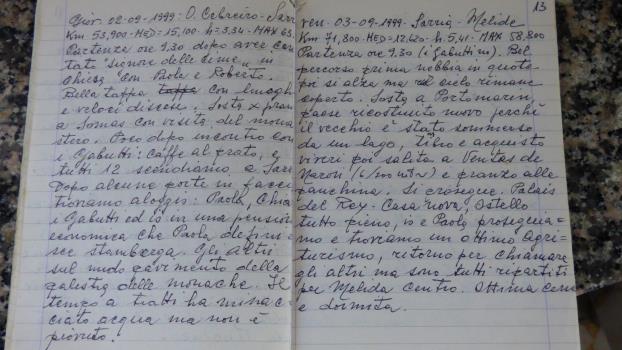 Giov. 02-09-1999: O. Cebreiro - Sarr
Km 53,900 = MED = 15,100 h = 3,34 - MAX 63
Partenza ore 9.30 dopo aver can
tato "Signore delle Cime" in
chiesa con Paola e Roberto.
Bella tappa con lunghe
e veloci discese. Sosta x pran
a Samos con visita del mona
stero. Poco dopo incontro con
i Gabutti: caffè al prato, e
tutti 12 scendiamo a Sarr
Dopo alcune porte in facci
troviamo alloggio: Paola, Chia
i Gabutti ed io in una pensione
economica che Paola defini
sce stamberga. Gli altri
sul nudo pavimento della
palestra delle monache. Il
tempo a tratti ha minac
ciato acqua ma non è
piovuto!
13
ven. 03-09-1999 - Sarria - Melide
Km 71,800 = MED = 12,620 - h = 5,41 - MAX 58,800
Partenza ore 9.30 (i Gabutti in). Bel
percorso prima nebbia in quota
poi si alza ma cielo rimane
coperto. Sosta a Portomarin,
paese ricostruito nuovo perchè
il vecchio è stato sommerso
da un lago, tibro e acquisto
viveri poi salita a Ventas de
Naron e pranzo alle
panchina. Si prosegue. Palais
del Rey - Casa nova, Ostello
tutto pieno, io e Paolo proseguia=
mo e troviamo un ottimo agri=
turismo, ritorno per chiamare
gli altri ma sono tutti ripartiti
per Melida centro. Ottima cena
e dormita.